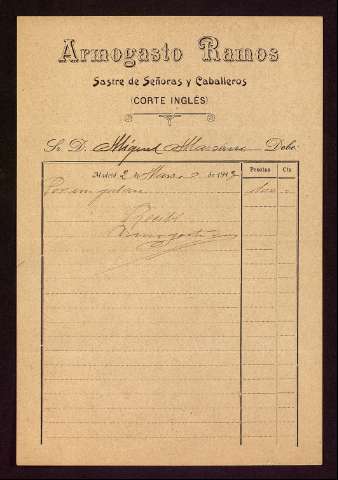 Armogasto Ramos
Sastre de Señoras y Caballeros
(CORTE INGLÉS)
Sr. D. Miguel Debe:
Madrid 2 de Marzo de 191 Pesetas Cts
Por un gaban 100
Recibí
Armogasto